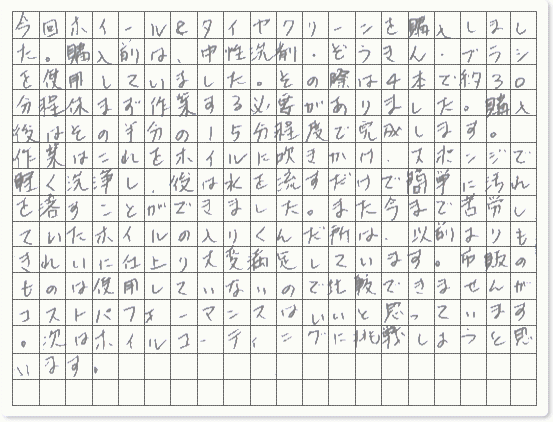 今回ホイール&タイヤクリーンを購入しまし
た。購入前は、中性洗剤・ぞうきん・ブラシ
を使用していました。その際は4本で約30
分程休まず作業する必要がありました。購入
後はその半分の15分程度で完成します。
作業はこれをホイルに吹きかけ、スポンジで
軽く洗浄し、後は水を流すだけで簡単に汚れ
を落すことができました。また今まで苦労し
ていたホイルの入りくんだ所は、以前よりも
きれいに仕上り大変満足しています。市販の
ものは使用していないので比較できませんが
コストパフォーマンスはいいと思っています
。次はホイルコーティングに挑戦しようと思
います。